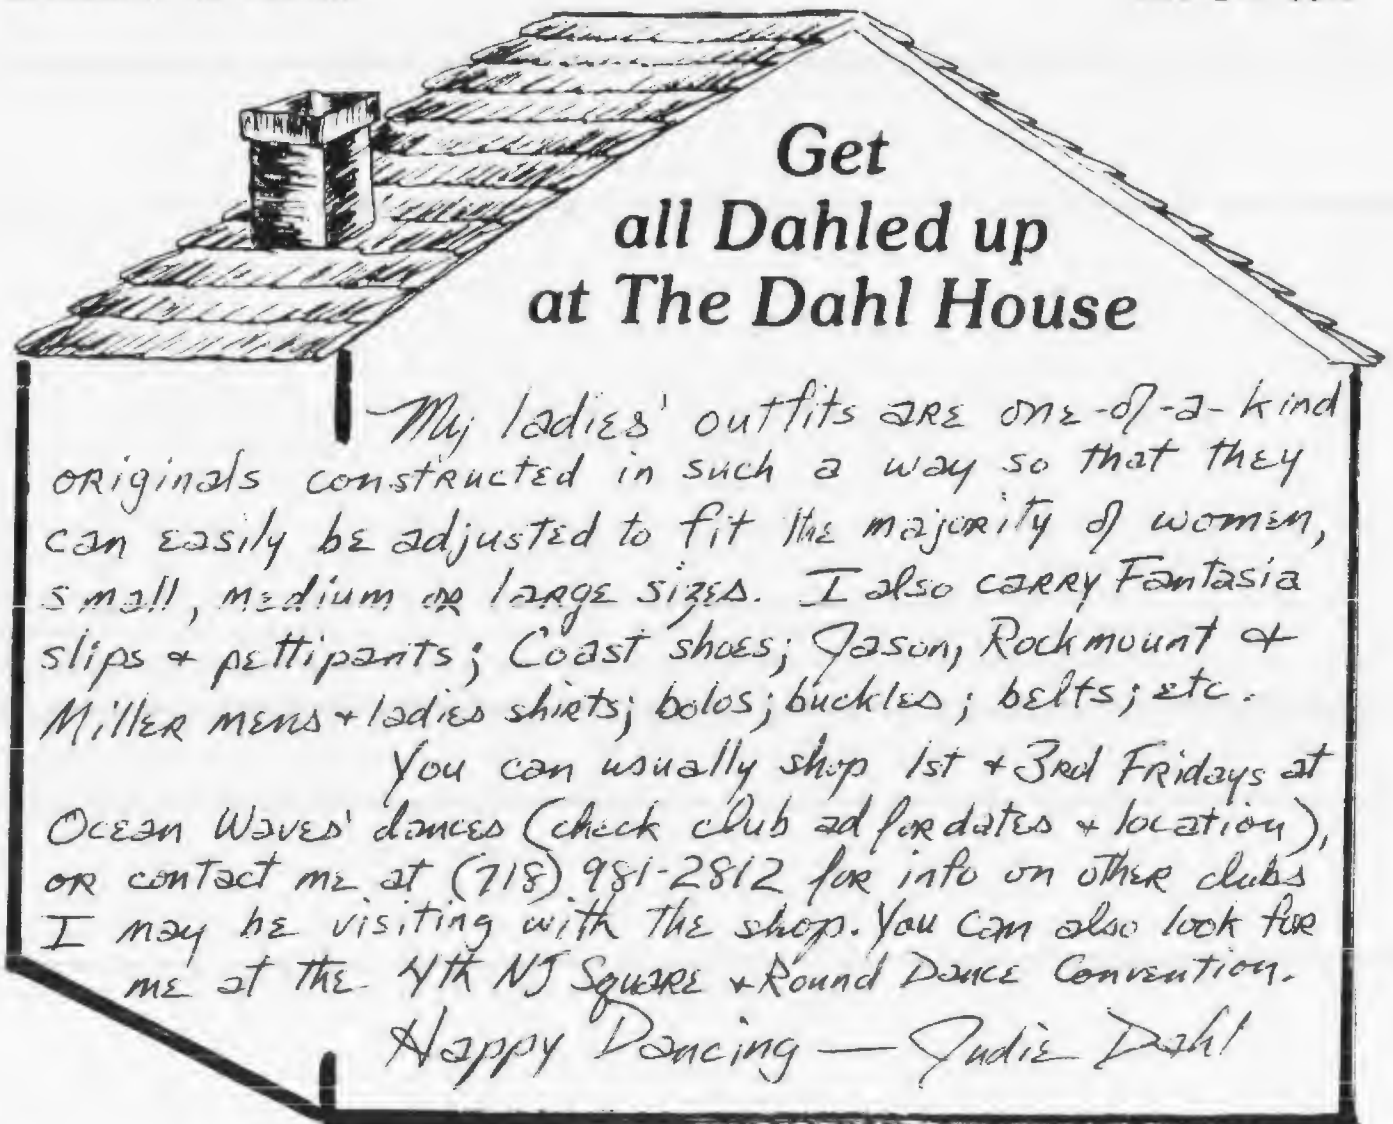 Get
all Dahled up
at The Dahl House
My ladies' outfits are one-of-a-kind
originals constructed in such a way so that they
can easily be adjusted to fit the majority of women,
small, medium or large sizes. I also carry Fantasia
slips + pettipants; Coast shoes; Jason, Rockmount +
Miller mens + ladies shirts; bolos; buckles; belts; etc.
You can usually shop 1st + 3rd Fridays at
Ocean Waves' dances (check club ad for dates + location),
or contact me at (718) 981-2812 for info on other clubs
I may be visiting with the shop. You can also look for
me at the 4th NJ Square + Round Dance Convention.
Happy Dancing — Judie Dahl